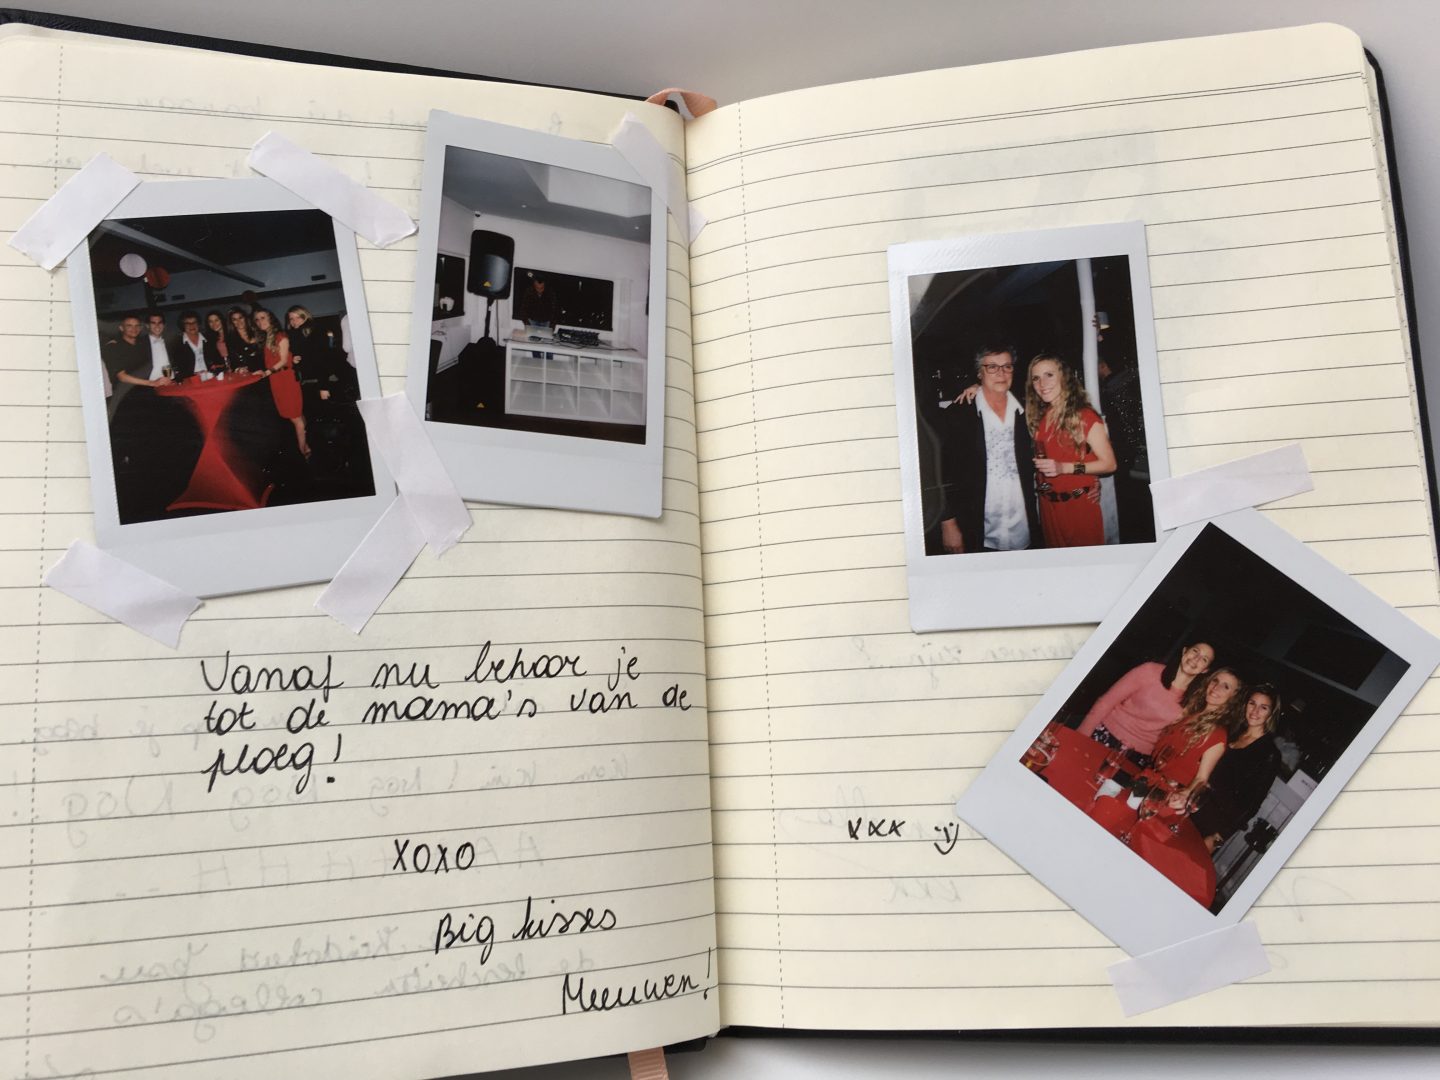 Vanaf nu behoor je
tot de mama's van de
ploeg!
XOXO
Big kisses
Meeuwen!
xxx :)